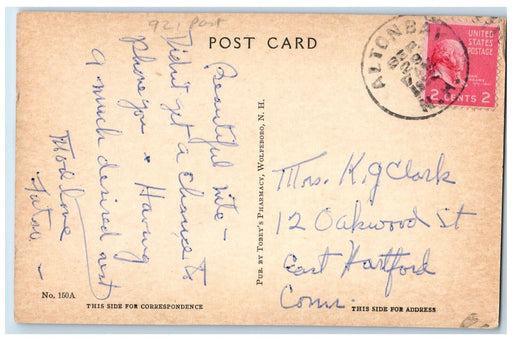 921 post
POST CARD
ALTON BAY
N.H.
UNITED
STATES
POSTAGE
2 CENTS 2
Beautiful nite -
Didn't get a chance to
phone you & Having
a much desired rest
Mrs. K. G Clark
12 Oakwood St
East Hartford
Conn.
PUB. BY TOBEY'S PHARMACY, WOLFEBORO, N. H.
No. 150A
THIS SIDE FOR CORRESPONDENCE
THIS SIDE FOR ADDRESS